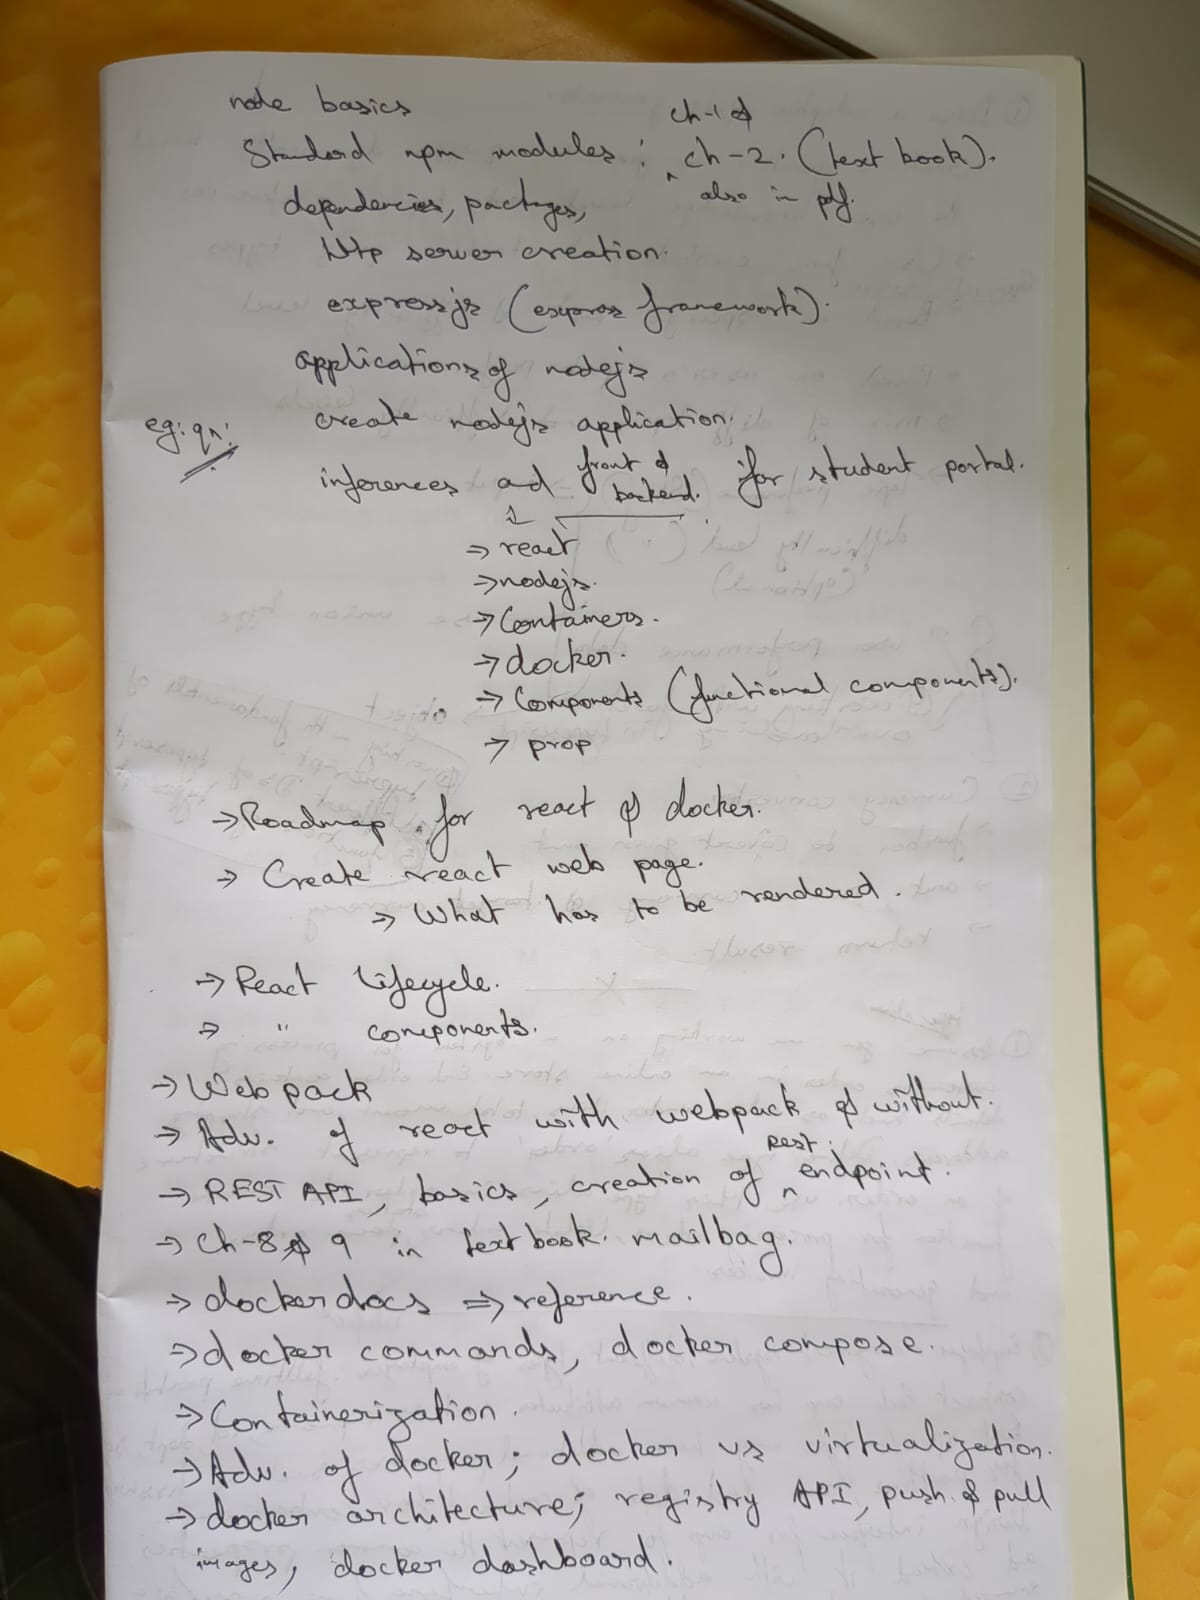 node basics
ch-1 &
Standard npm modules : ^ ch-2. (text book).
also in pdf.
dependencies, packages,
http server creation.
expressjs (express framework).
applications of nodejs
eg: qs: create nodejs application.
inferences and front & backend. for student portal.
→ react
→ nodejs.
→ Containers.
→ docker.
→ Components (functional components).
→ prop
→ Roadmap for react & docker.
→ Create react web page.
→ What has to be rendered.
→ React Lifecycle.
→ " components.
→ Webpack
→ Adv. of react with webpack & without.
→ REST API, basics, creation of ^ Rest endpoint.
→ Ch-8 & 9 in textbook. mailbag.
→ docker docs ⇒ reference.
→ docker commands, docker compose.
→ Containerization.
→ Adv. of docker; docker vs virtualization.
→ docker architecture; registry API, push & pull
images, docker dashboard.